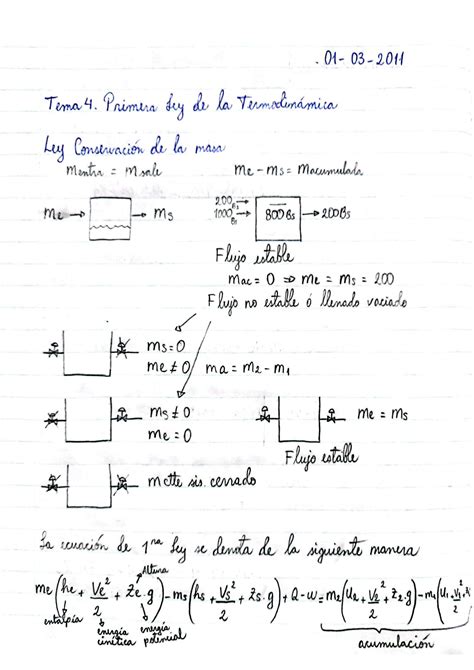 01-03-2011
Tema 4. Primera Ley de la Termodinámica
Ley Conservación de la masa
mentra = m sale
me - ms = macumulada
me → → ms
200 Bs →
1000 Bs →
800 Bs → 200 Bs
Flujo estable
mac = 0 ⇒ me = ms = 200
Flujo no estable ó llenado vaciado
ms = 0
me ≠ 0 ma = m2 - m1
ms ≠ 0
me = 0
me = ms
Flujo estable
m ctte sis. cerrado
La ecuación de 1ra Ley se denota de la siguiente manera
Altura
me(he + Ve²/2 + Ze.g) - ms(hs + Vs²/2 + Zs.g) + Q - W = m2(U2 + V2²/2 + Z2.g) - m1(U1 + V1²/2
entalpía
energía cinética
energía potencial
acumulación